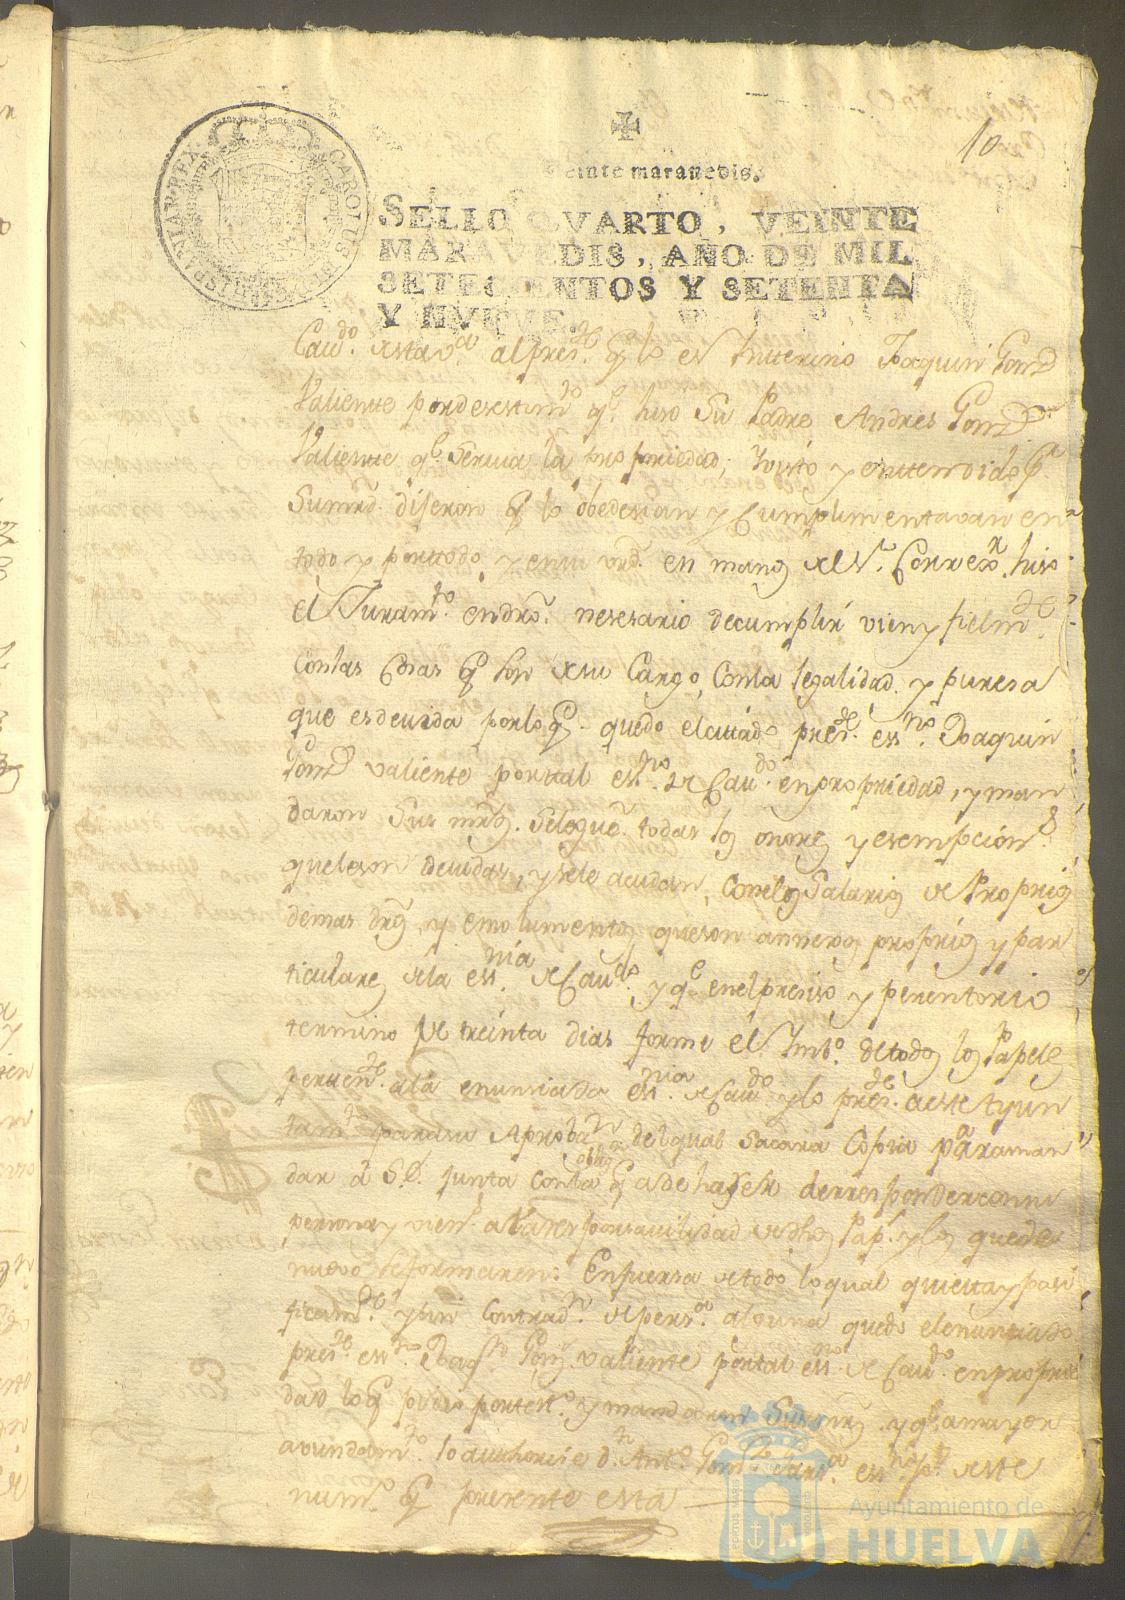 10
Veinte maravedis.
SELLO QVARTO, VEINTE
MARAVEDIS, AÑO DE MIL
SETECIENTOS Y SETENTA
Y NVEVE.
CAROLUS HISPANIAR REX
Caudo. desta va. al preste. qe lo es Interino Joaquin Gonz
Valiente por desestimto. qe. hiso Su Padre Andres Gonz
Valiente qe. Servia la propriedad; Visto y entendido pr.
Sumrd. dijeron qe lo obedesian y Cumplimentavan en
todo y por todo y en su vrd. en manos del Sr. Correxor. hiso
el Juramto. en dro. nesesario de cumplir vien y fielmte.
con las cosas qe son de su Cargo, con la legalidad y puresa
que es devida por lo qe. quedo el citado preste. essno. Joaquin
Gonz Valiente por tal essno. de Caudo. en propriedad, y man
daron Sus mrds. se le guen. todas los onores y esempcions.
que le son devidas, y se le acudan, con los Salarios de Proprios
demas dros, y emolumentos que son annexos proprios y par
ticulares de la essnia. de Caudo. y qe en el presiso y perentorio
termino de treinta dias forme el Imbo. de todos los Papeles
pertente. a la enunciada essnia. de Caudo y lo preste. a este Ayun
tamto para su Aproban. del qual sacara Copia para man
dar a S.E. junta con la oblign qe a de haser de responder con su
persona y vienes a la responsavilidad de dhos Paps. y los que de
nuevo se formaren: En fuersa de todo lo qual quieta y pasi
ficamte. y sin Contradn. de persna. alguna quedo el enunciado
preste. essno. Joaqn. Gonz Valiente por tal essno. de Caudo. en proprie
dad lo qe pidio por testo. y mandaron Sus mrds. y qe a mayor
avundamto. lo authorise Dn. Anto. essno. ppco. de este
numo. qe presente esta
Ayuntamiento de
HUELVA